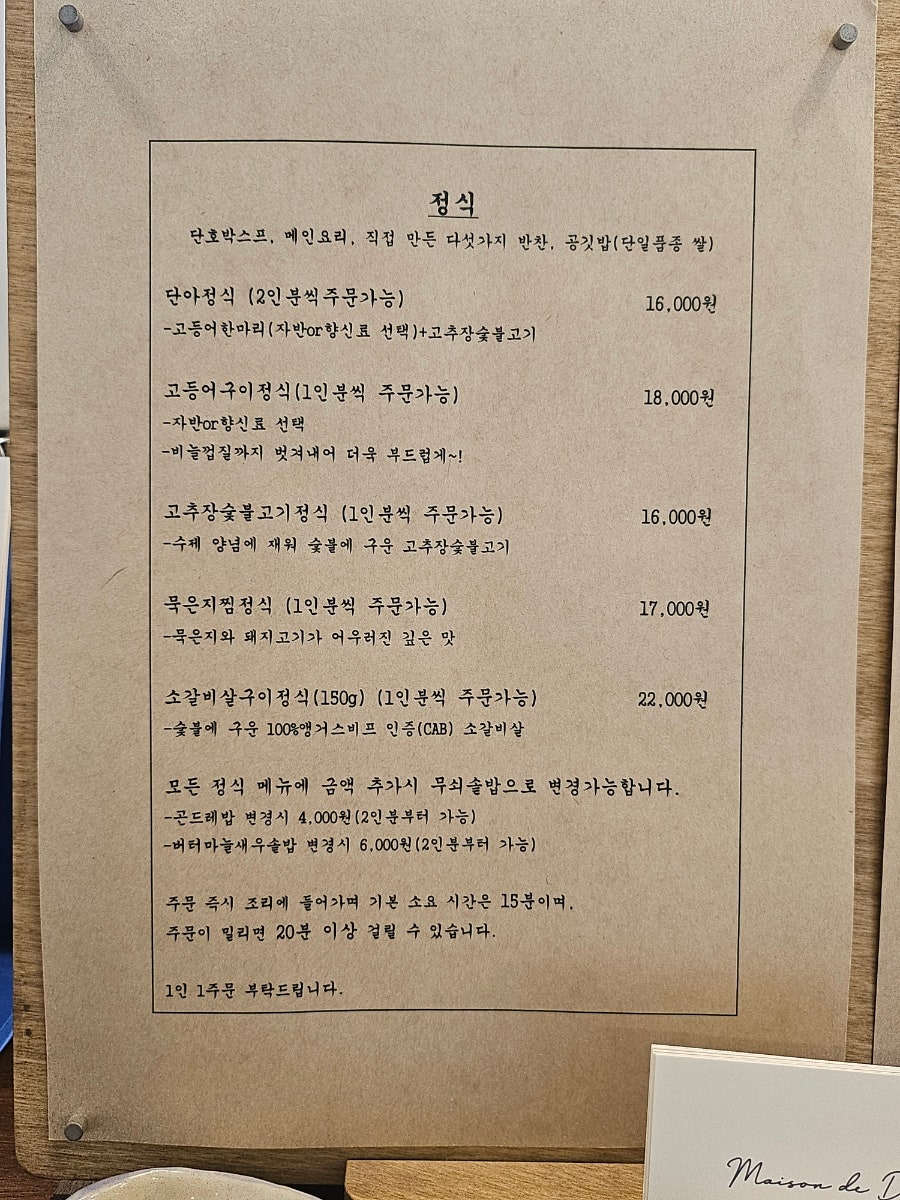 정식
단호박스프, 메인요리, 직접 만든 다섯가지 반찬, 공깃밥(단일품종 쌀)
단아정식 (2인분씩주문가능) 16,000원
-고등어한마리(자반or향신료 선택)+고추장숯불고기
고등어구이정식(1인분씩 주문가능) 18,000원
-자반or향신료 선택
-비늘껍질까지 벗겨내어 더욱 부드럽게~!
고추장숯불고기정식 (1인분씩 주문가능) 16,000원
-수제 양념에 재워 숯불에 구운 고추장숯불고기
묵은지찜정식 (1인분씩 주문가능) 17,000원
-묵은지와 돼지고기가 어우러진 깊은 맛
소갈비살구이정식(150g) (1인분씩 주문가능) 22,000원
-숯불에 구운 100%앵거스비프 인증(CAB) 소갈비살
모든 정식 메뉴에 금액 추가시 무쇠솥밥으로 변경가능합니다.
-곤드레밥 변경시 4,000원(2인분부터 가능)
-버터마늘새우솥밥 변경시 6,000원(2인분부터 가능)
주문 즉시 조리에 들어가며 기본 소요 시간은 15분이며,
주문이 밀리면 20분 이상 걸릴 수 있습니다.
1인 1주문 부탁드립니다.
Maison de